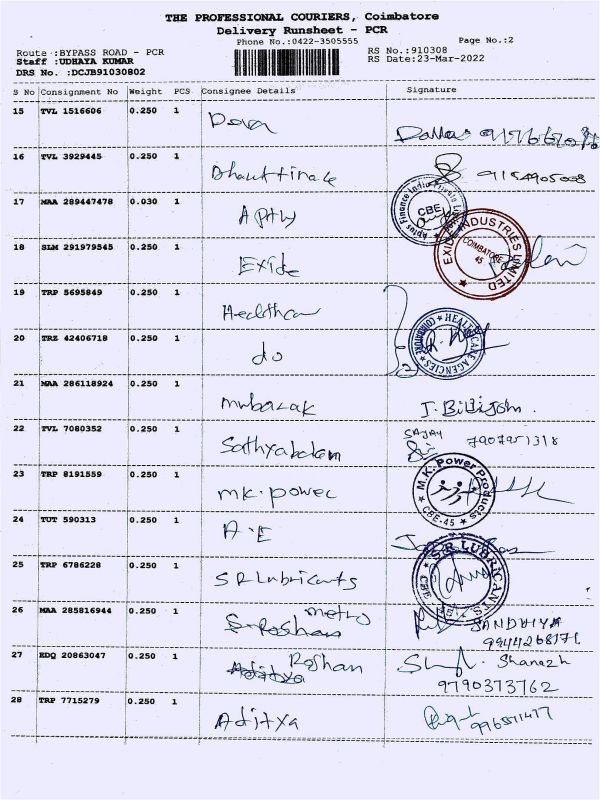 THE PROFESSIONAL COURIERS, Coimbatore
Delivery Runsheet - PCR
Phone No.:0422-3505555 Page No.:2
Route :BYPASS ROAD - PCR RS No.:910308
Staff :UDHAYA KUMAR RS Date:23-Mar-2022
DRS No. :DCJB91030802
S No Consignment No Weight PCS Consignee Details Signature
15 TVL 1516606 0.250 1
16 TVL 3929445 0.250 1 9154905008
17 MAA 289447478 0.030 1
Aptus Finance India Private CBE
18 SLM 291979545 0.250 1 Exide
EXIDE INDUSTRIES LIMITED COIMBATORE 45
19 TRP 5695849 0.250 1 Healthcar
20 TRZ 42406718 0.250 1 do
HEALTHCARE AGENCIES COIMBATORE
21 MAA 286118924 0.250 1 mubarak
22 TVL 7080352 0.250 1 SAJAY 7907951318
23 TRP 8191559 0.250 1 mk.power
M.K.Power Products CBE-45
24 TUT 590313 0.250 1 A.E
25 TRP 6786228 0.250 1 S R Lubricants
S.R.LUBRICANTS CBE
26 MAA 285816944 0.250 1 metro SANDHIYA
9944268171
27 EDQ 20863047 0.250 1 Roshan Shanazh
9790373762
28 TRP 7715279 0.250 1 Aditya